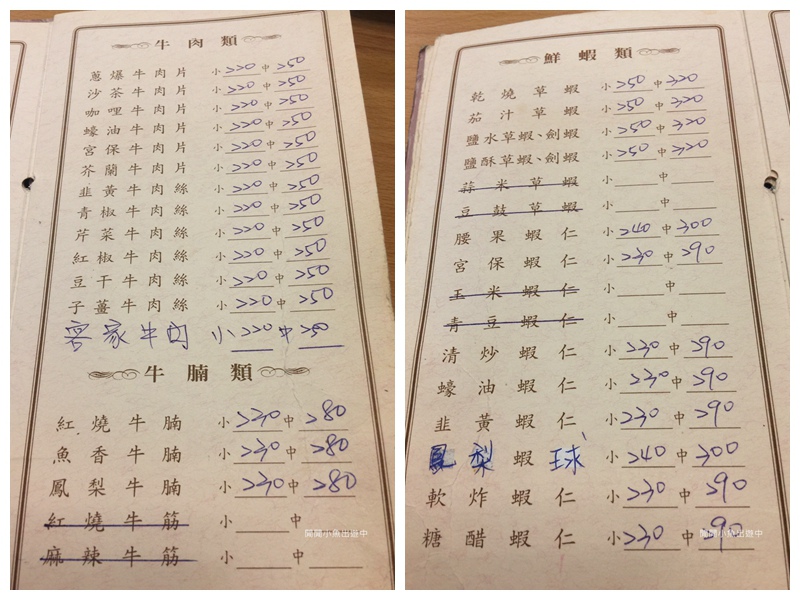 牛肉類
蔥爆牛肉片 小220 中250
沙茶牛肉片 小220 中250
咖哩牛肉片 小220 中250
蠔油牛肉片 小220 中250
宮保牛肉片 小220 中250
芥蘭牛肉片 小220 中250
韭黃牛肉絲 小220 中250
青椒牛肉絲 小220 中250
芹菜牛肉絲 小220 中250
紅椒牛肉絲 小220 中250
豆干牛肉絲 小220 中250
子薑牛肉絲 小220 中250
客家牛肉 小220 中250
牛腩類
紅燒牛腩 小230 中280
魚香牛腩 小230 中280
鳳梨牛腩 小230 中280
紅燒牛筋 小 中
麻辣牛筋 小 中
鬧鬧小魚出遊中
鮮蝦類
乾燒草蝦 小250 中320
茄汁草蝦 小250 中320
鹽水草蝦、劍蝦 小250 中320
鹽酥草蝦、劍蝦 小250 中320
蒜米草蝦 小 中
豆鼓草蝦 小 中
腰果蝦仁 小240 中300
宮保蝦仁 小230 中290
玉米蝦仁 小 中
青豆蝦仁 小 中
清炒蝦仁 小230 中290
蠔油蝦仁 小230 中290
韭黃蝦仁 小230 中290
鳳梨蝦球 小240 中300
軟炸蝦仁 小230 中290
糖醋蝦仁 小230 中290
鬧鬧小魚出遊中